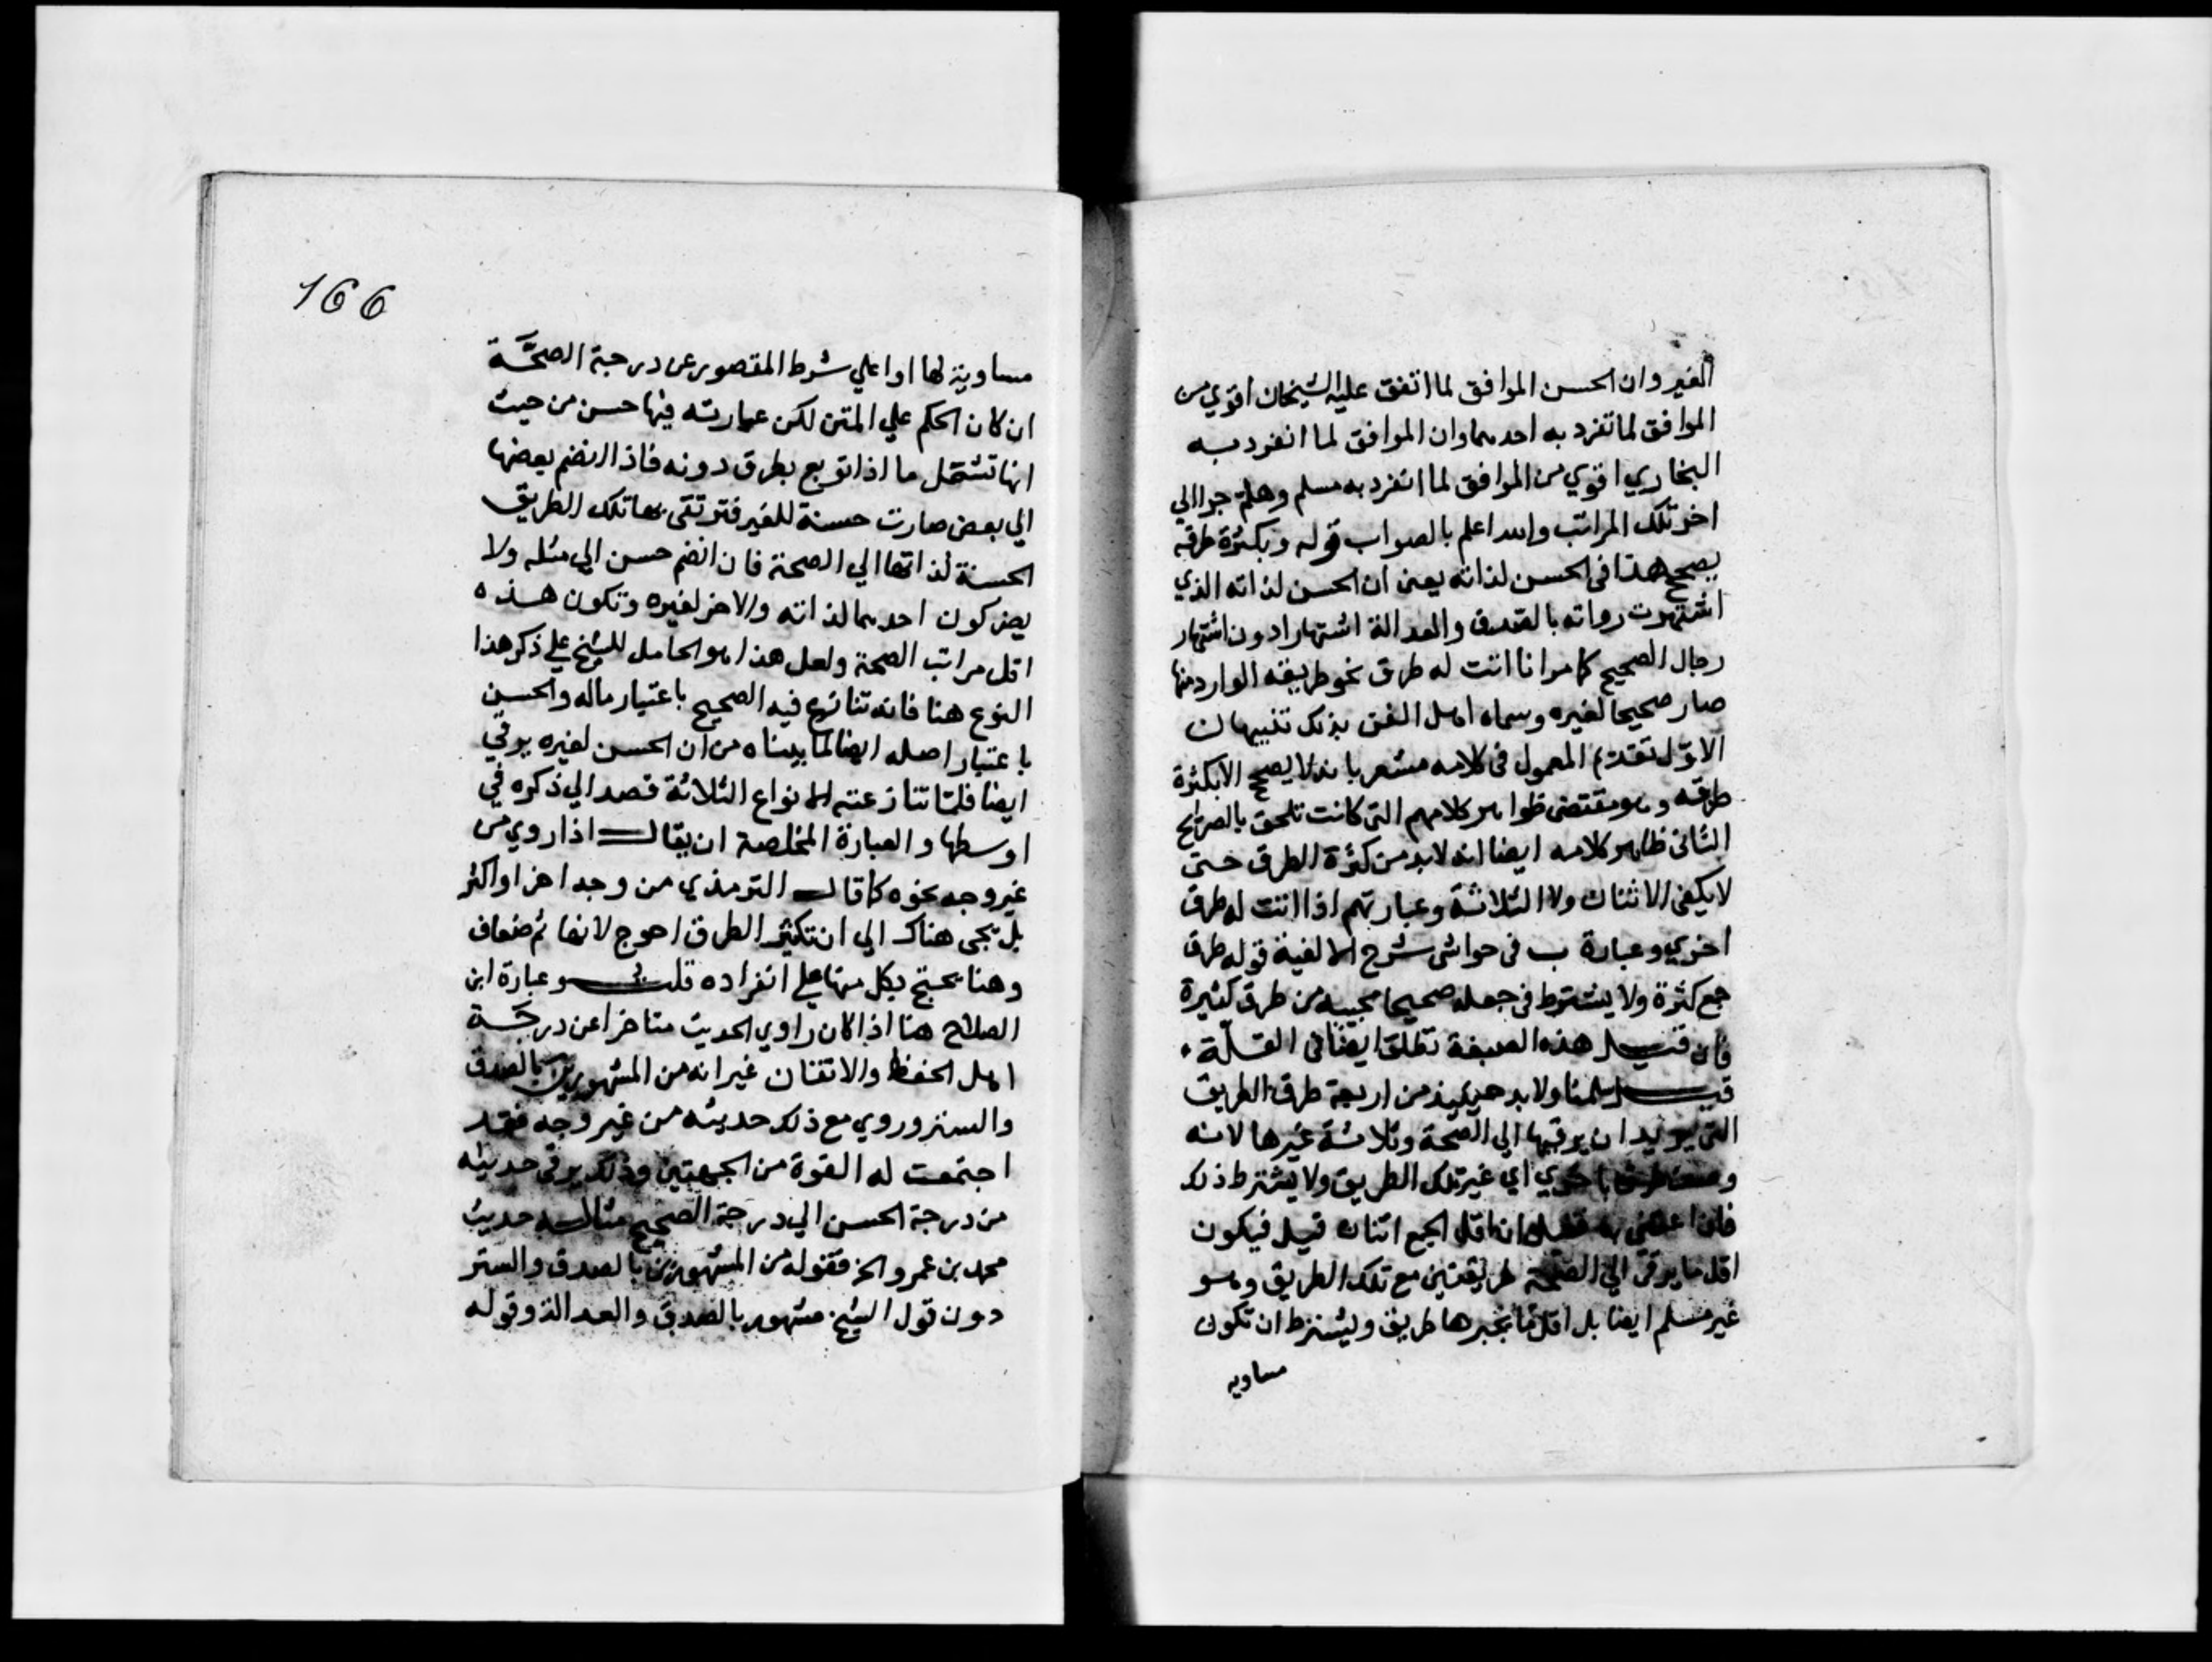 الغير وان الحسن الموافق لما اتفق عليه الشيخان اقوي من
الموافق لما تفرد به احدهما وان الموافق لما انفرد به
البخاري اقوي من الموافق لما انفرد به مسلم وهلم جرا الي
اخر تلك المراتب والله اعلم بالصواب قوله وبكثرة طرقه
يصحح هذا في الحسن لذاته يعني ان الحسن لذاته الذي
اشتهرت رواته بالصدق والعدالة اشتهارا دون اشتهار
رجال الصحيح كما مر انا اتت له طرق نحو طريقه الوارد منها
صار صحيحا لغيره وسماه اهل الفن بذلك تنبيهان
الاول تقديم المعمول في كلامه مشعر بانه لا يصحح الا بكثرة
طرقه وهو مقتضي ظواهر كلامهم التي كانت تلحق بالصرايح
الثاني ظاهر كلامه ايضا انه لابد من كثرة الطرق حتى
لا يكفي الاثنان ولا الثلاثة وعبارتهم اذا اتت له طرق
اخري وعبارة ب في حواشي شرح الالفية قوله طرق
جمع كثرة ولا يشترط في جعله صحيحا مجيبه من طرق كثيرة
فان قيل هذه الصيغة تطلق ايضا في القلة .
قيل سلمنا ولابد حينيذ من اربعة طرق الطريق
التي يريد ان يرقيها الي الصحة وثلاثة غيرها لانه
اخري اي غير تلك الطريق ولا يشترط ذلك
فان ان اقل الجمع اثنان قيل فيكون
اقل ما يرقي الي الصحة طريقتين مع تلك الطريق وهو
غير مسلم ايضا بل اقل ما يجبرها طريق ويشترط ان تكون
مساويه
166
مساوية لها او اعلي شرط المقصور عن درجة الصحة
ان كان الحكم علي المتن لكن عبارته فيها حسن من حيث
انها تشمل ما اذا توبع بطرق دونه فاذا انضم بعضها
الي بعض صارت حسنة للغير فترتقي بها تلك الطريق
الحسنة لذاتها الي الصحة فان انضم حسن الي مثله ولا
يضر كون احدهما لذاته والاخر لغيره وتكون هذه
اقل مراتب الصحة ولعل هذا هو الحامل للشيخ علي ذكر هذا
النوع هنا فانه تنازع فيه الصحيح باعتبار ماله والحسن
باعتبار اصله ايضا لما بيناه من ان الحسن لغيره يرقي
ايضا فلما تنازعته الانواع الثلاثة قصد الي ذكره في
اوسطها والعبارة المخلصة ان يقال اذا روي من
غير وجه نحوه كما قال الترمذي من وجه اخر او اكثر
بل يجي هناك الي ان تكثير الطرق احوج لانها ثم ضعاف
وهنا يحتج بكل منها علي انفراده قلت وعبارة ابن
الصلاح هنا اذا كان راوي الحديث متاخرا عن درجة
اهل الحفظ والاتقان غير انه من المشهورين بالصدق
والستر وروي مع ذلك حديثه من غير وجه فقد
اجتمعت له القوة من الجهتين وذلك يرقي حديثه
من درجة الحسن الي درجة الصحيح مثاله حديث
محمد بن عمرو الخ فقوله من المشهورين بالصدق والستر
دون قول الشيخ مشهور بالصدق والعدالة وقوله